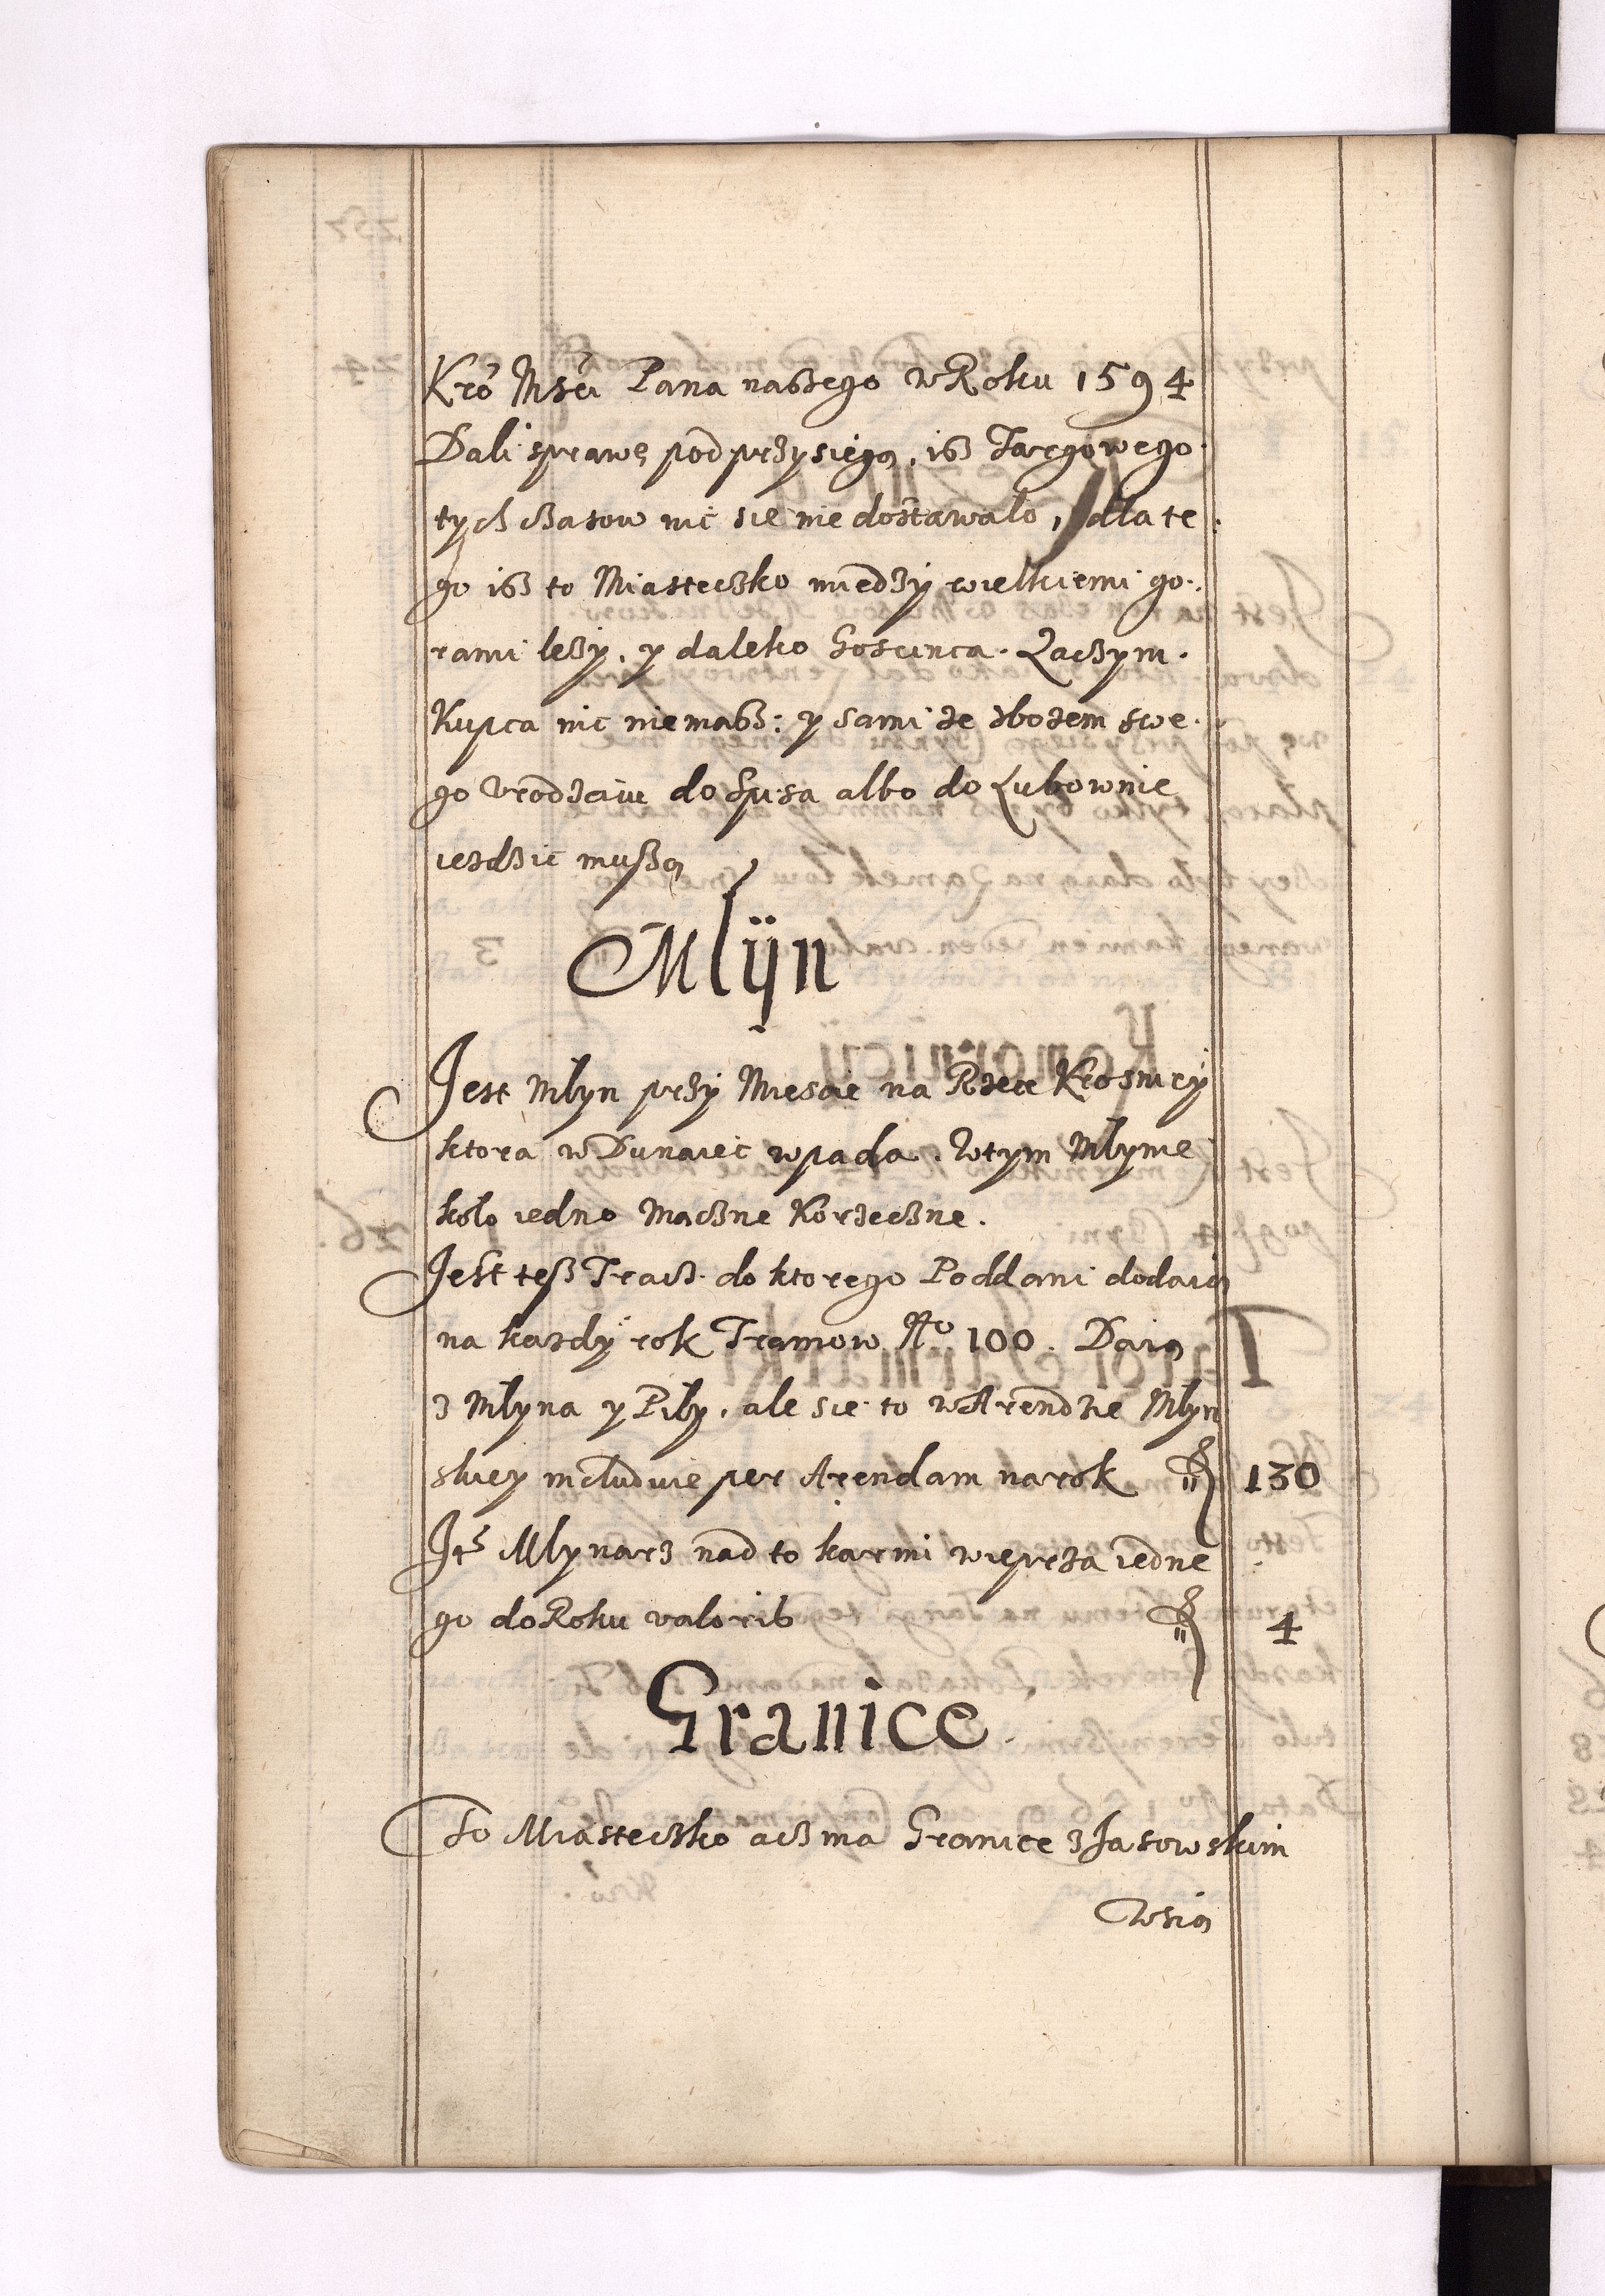 Kro Msci Pana naßego w Roku 1594
Dali sprawę pod przysięgą, iß Targowego
tych cżasow nic się nie dostawalo, dla te
go iß to Miasteczko miedzy wielkiemi go
rami leży, y daleko Goscinca. Zaczym
Kupca nic niemaß: y sami ze zbożem swe
go vrodzaiu do Spisa albo do Lubownie
iezdzic mußą
Mlÿn
Jest Mlyn przy Miescie na Rzece Krosnicy
ktora w Dunaiec wpada. W tym Mlynie
kolo iedno Maczne Korzeczne.
Jest teß Tracz do ktorego Poddani dodaią
na kazdy rok Tramow No 100. Daią
z Mlyna y Pily, ale sie to w Arendzie Mlyn
skiey includuie per Arendam na rok 130
Jt Mlynarz nad to karmi wieprza iedne
go do Roku valoris 4
Granice
To Miasteczko acz ma Granice z
Wsią